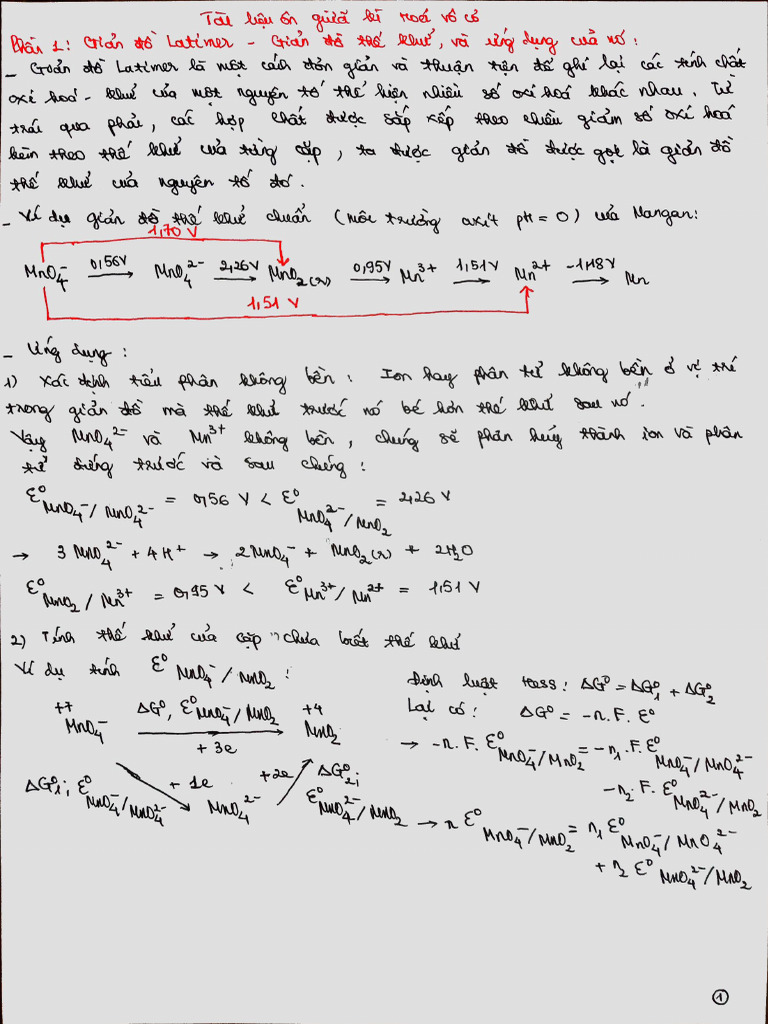 Tài liệu ôn giữa kì hoá vô cơ
Phần 1: Giản đồ Latimer - Giản đồ thế khử, và ứng dụng của nó:
- Giản đồ Latimer là một cách đơn giản và thuận tiện để ghi lại các tính chất
oxi hoá - khử của một nguyên tố thể hiện nhiều số oxi hoá khác nhau. Từ
trái qua phải, các hợp chất được sắp xếp theo chiều giảm số oxi hoá
kèm theo thế khử của từng cặp, ta được giản đồ được gọi là giản đồ
thế khử của nguyên tố đó.
- Ví dụ giản đồ thế khử chuẩn (môi trường axit pH = 0) của Mangan:
1,70 V
MnO₄⁻ 0,56V → MnO₄²⁻ 2,26V → MnO₂(r) 0,95V → Mn³⁺ 1,51V → Mn²⁺ -1,18V → Mn
1,51 V
- Ứng dụng:
1) Xác định tiểu phân không bền: Ion hay phân tử không bền ở vị trí
trong giản đồ mà thế khử trước nó bé hơn thế khử sau nó.
Vậy MnO₄²⁻ và Mn³⁺ không bền, chúng sẽ phân huỷ thành ion và phân
tử đứng trước và sau chúng:
ε⁰ MnO₄⁻/MnO₄²⁻ = 0,56 V < ε⁰ MnO₄²⁻/MnO₂ = 2,26 V
→ 3 MnO₄²⁻ + 4H⁺ → 2MnO₄⁻ + MnO₂(r) + 2H₂O
ε⁰ MnO₂/Mn³⁺ = 0,95 V < ε⁰ Mn³⁺/Mn²⁺ = 1,51 V
2) Tính thế khử của cặp chưa biết thế khử
Ví dụ tính ε⁰ MnO₄⁻/MnO₂:
+7 MnO₄⁻ ΔG⁰, ε⁰ MnO₄⁻/MnO₂ → +4 MnO₂
+ 3e
ΔG⁰₁; ε⁰ MnO₄⁻/MnO₄²⁻ + 1e MnO₄²⁻ +2e ΔG⁰₂; ε⁰ MnO₄²⁻/MnO₂
Định luật Hess: ΔG⁰ = ΔG⁰₁ + ΔG⁰₂
Lại có: ΔG⁰ = -n.F.ε⁰
→ -n.F.ε⁰ MnO₄⁻/MnO₂ = -n₁.F.ε⁰ MnO₄⁻/MnO₄²⁻
-n₂.F.ε⁰ MnO₄²⁻/MnO₂
→ n ε⁰ MnO₄⁻/MnO₂ = n₁ ε⁰ MnO₄⁻/MnO₄²⁻
+ n₂ ε⁰ MnO₄²⁻/MnO₂
1